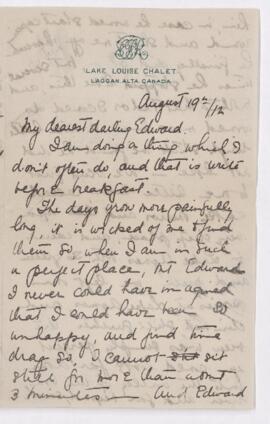 LAKE LOUISE CHALET
LAGGAN ALTA CANADA
August 19th/12
My dearest darling Edward.
I am doing a thing which I
don't often do, and that is write
before breakfast.
The days grow more painfully
long, it is wicked of me to find
them so, when I am in such
a perfect place, but Edward
I never could have imagined
that I could have been so
unhappy, and find time
drag so. I cannot sit
still for more than about
3 minutes — And Edward